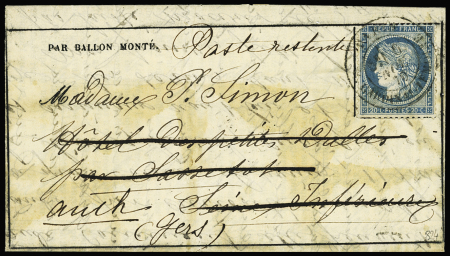 PAR BALLON MONTÉ.
Poste restante
Madame P. Simon
Hôtel des petites Dalles
par Sassetot
auch Seine Inférieure
(Gers.)